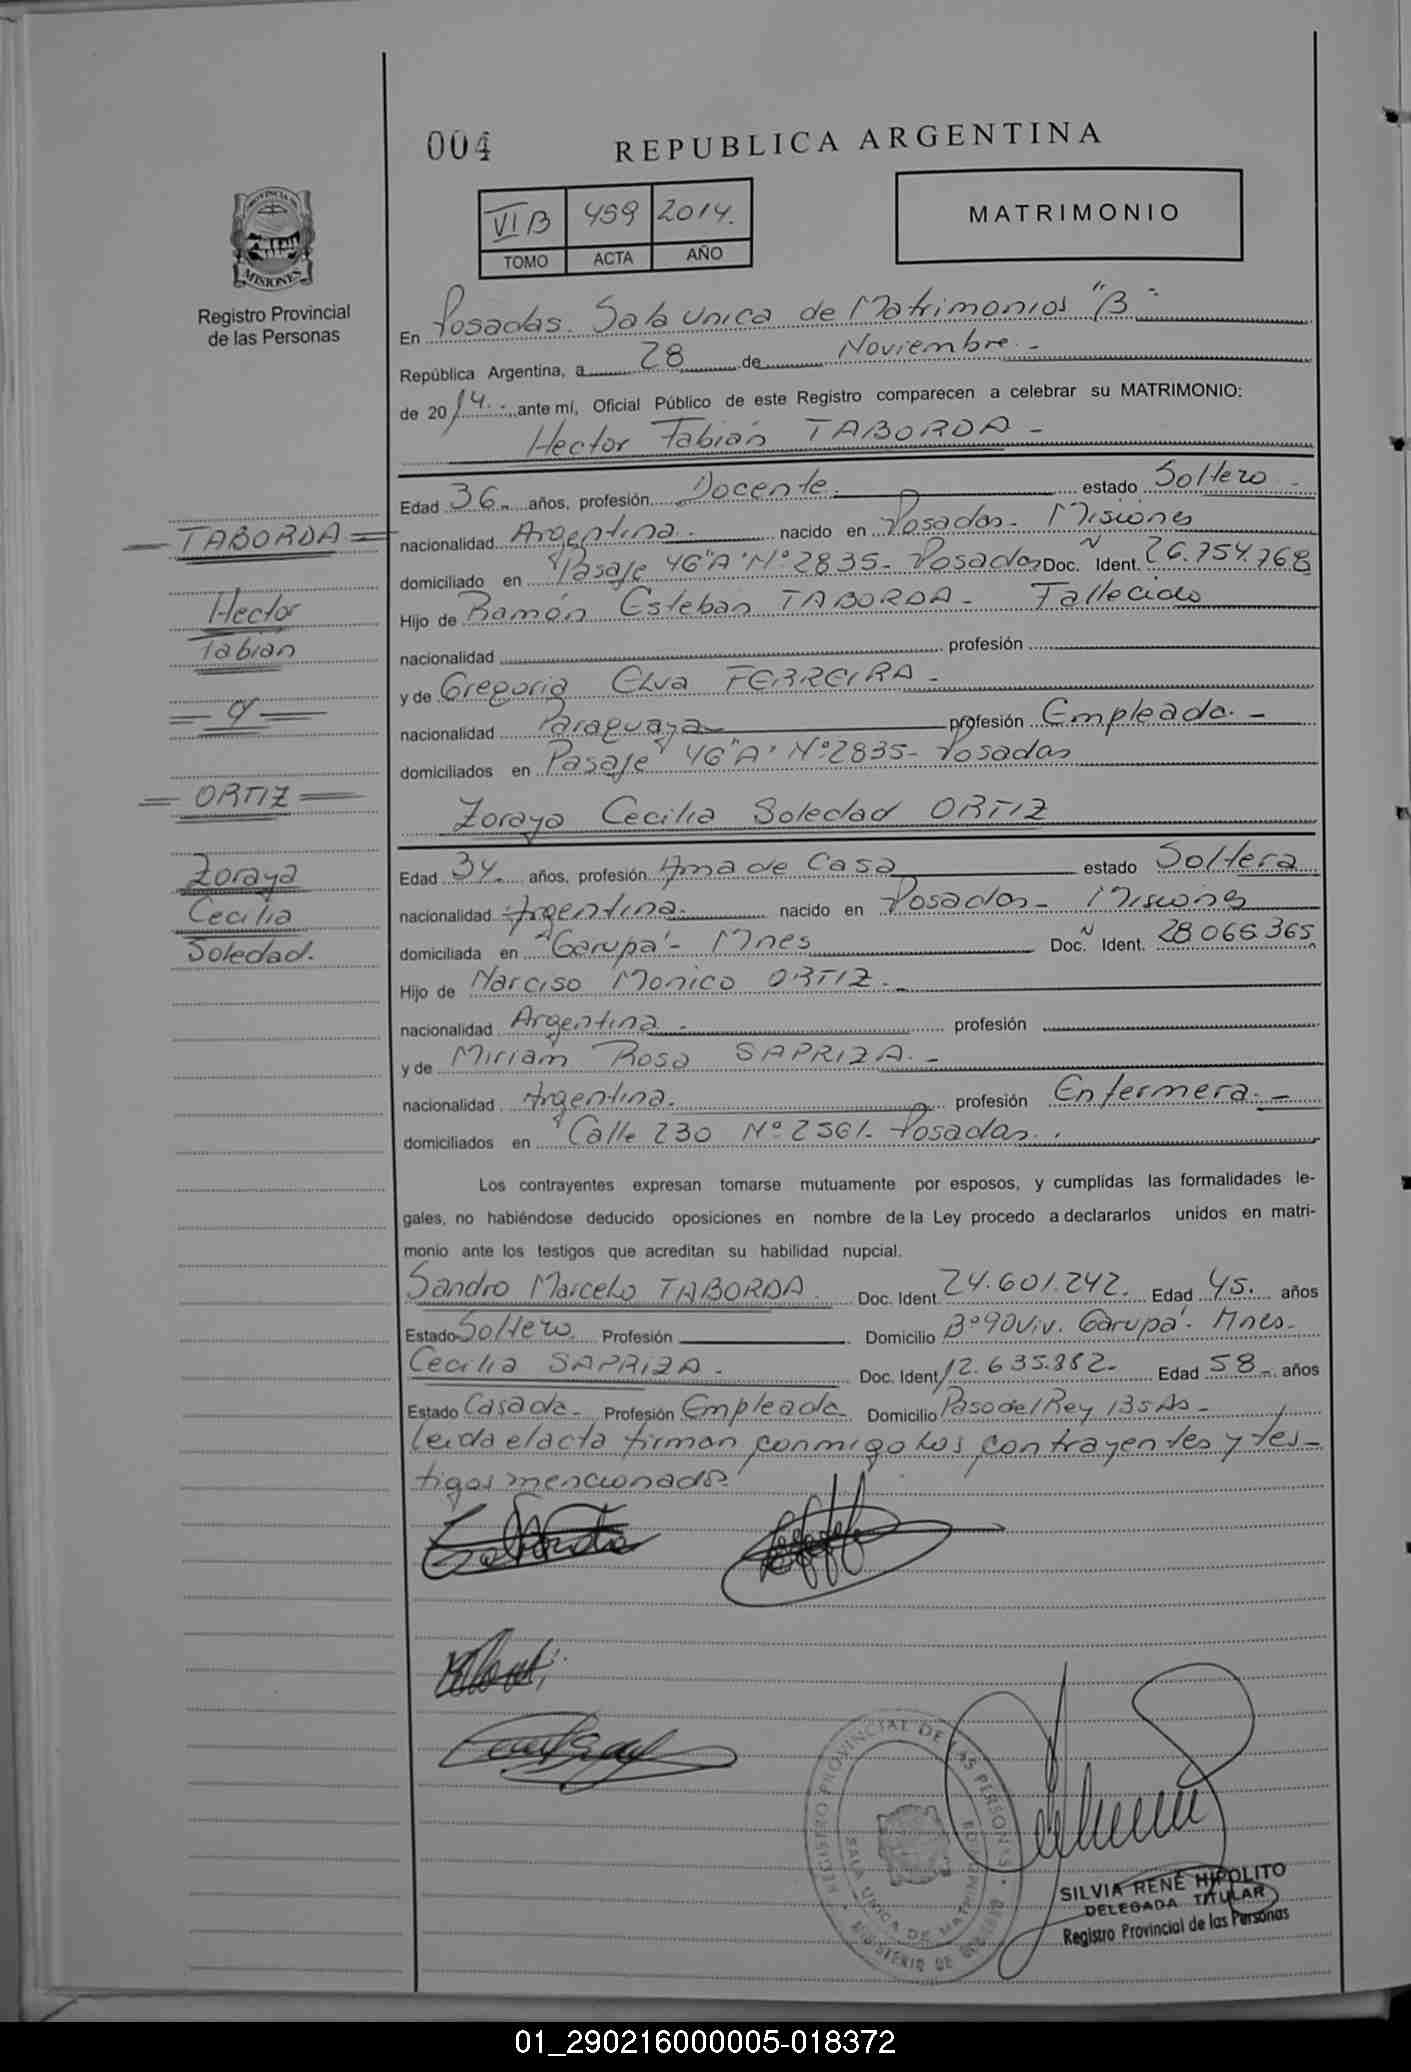 004
REPUBLICA ARGENTINA
PROVINCIA DE
MISIONES
VI B 459 2014.
TOMO ACTA AÑO
MATRIMONIO
Registro Provincial
de las Personas
En Posadas. Sala Unica de Matrimonios "B"-
República Argentina, a 28 de Noviembre.-
de 2014.- ante mí, Oficial Público de este Registro comparecen a celebrar su MATRIMONIO:
Hector Fabián TABORDA-
Edad 36 años, profesión Docente. estado Soltero-
nacionalidad Argentina. nacido en Posadas- Misiones
domiciliado en Pasaje 46"A" Nº 2835- Posadas Doc. Ñ Ident. 26.754.768
Hijo de Ramón Esteban TABORDA- Fallecido
nacionalidad profesión
y de Gregoria Elva FERREIRA-
nacionalidad Paraguaya profesión Empleada.-
domiciliados en Pasaje 46"A" Nº 2835- Posadas
Zoraya Cecilia Soledad ORTIZ
Edad 34. años, profesión Ama de Casa estado Soltera
nacionalidad Argentina. nacido en Posadas- Misiones
domiciliada en Garupá- Mnes Doc. Ñ Ident. 28.066.365
Hijo de Narciso Monico ORTIZ.-
nacionalidad Argentina- profesión
y de Miriam Rosa SAPRIZA.-
nacionalidad Argentina. profesión Enfermera.-
domiciliados en Calle 230 Nº 2561- Posadas.
Los contrayentes expresan tomarse mutuamente por esposos, y cumplídas las formalidades le-
gales, no habiéndose deducido oposiciones en nombre de la Ley procedo a declararlos unidos en matri-
monio ante los testigos que acreditan su habilidad nupcial.
Sandro Marcelo TABORDA. Doc. Ident. 24.601.242. Edad 45. años
Estado Soltero. Profesión Domicilio Bº 90 Viv. Garupá- Mnes.
Cecilia SAPRIZA- Doc. Ident. 12.635.882- Edad 58- años
Estado Casada- Profesión Empleada- Domicilio Paso del Rey 135 As-
Leida el acta firman conmigo los contrayentes y tes-
tigos mencionados
TABORDA
Hector
Fabian
y
ORTIZ
Zoraya
Cecilia
Soledad.
REGISTRO PROVINCIAL DE LAS PERSONAS
SALA UNICA DE MATRIMONIO
MINISTERIO DE GOBIERNO
SILVIA RENÉ HIPOLITO
DELEGADA TITULAR
Registro Provincial de las Personas
01_290216000005-018372